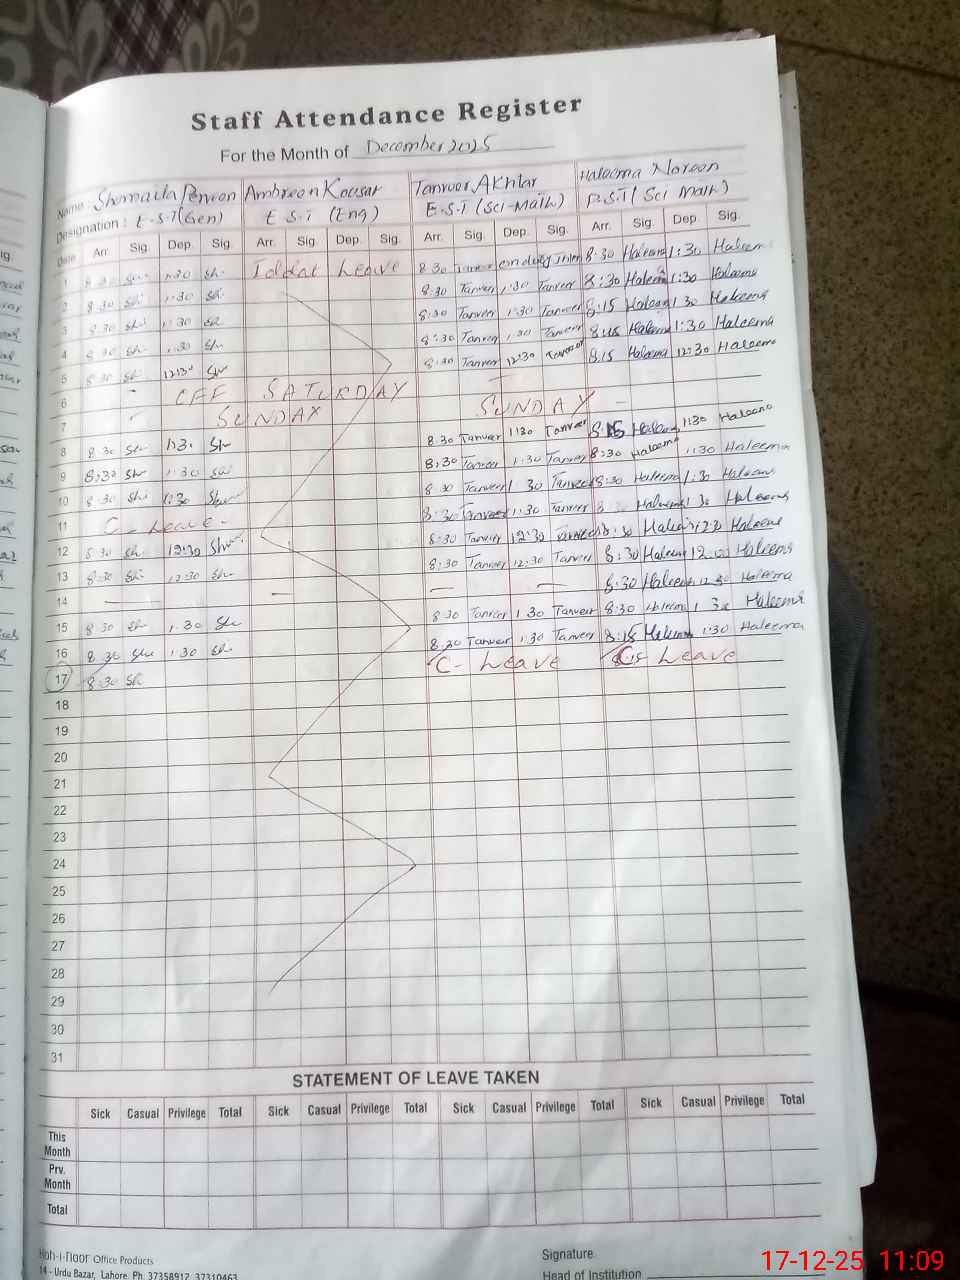 Staff Attendance Register
For the Month of December 2025
Name: Shomaila Perveen Ambreen Kousar Tanveer Akhtar Haleema Noreen
Designation: E.S.T (Gen) E S T (Eng) E.S.T (Sci-Math) E.S.T (Sci Math)
Date Arr. Sig. Dep. Sig. Arr. Sig. Dep. Sig. Arr. Sig. Dep. Sig. Arr. Sig. Dep. Sig.
1 8 30 Sh 1:30 Sh Leave 8 30 8:30 Haleema 1:30 Haleema
2 8:30 Sh 1:30 Sh 8:30 Tanveer 1:30 Tanveer 8:30 Haleema 1:30 Haleema
3 8:30 Sh 1:30 Sh 8:30 Tanveer 1:30 Tanveer 8:15 Haleema 1 30 Haleema
4 8:30 Sh 1:30 Sh 8:30 Tanveer 1:30 Tanveer 8:15 Haleema 1:30 Haleema
5 8:30 Sh 12:30 Sh 8:30 Tanveer 12:30 Tanveer 8:15 Haleema 12:30 Haleema
6 OFF SATURDAY
7 SUNDAY SUNDAY
8 8 30 Sh 1:30 Sh 8 30 Tanveer 1:30 Tanveer 8:15 Haleema 1:30 Haleema
9 8:30 Sh 1:30 Sh 8:30 Tanveer 1:30 Tanveer 8:30 Haleema 1:30 Haleema
10 8:30 Sh 1:30 Sh 8 30 Tanveer 1 30 Tanveer 8:30 Haleema 1:30 Haleema
11 C - Leave - 8:30 Tanveer 1:30 Tanveer Haleema 1:30 Haleema
12 8:30 Sh 12:30 Sh 8:30 Tanveer 12:30 Tanveer 8:30 Haleema 12:30 Haleema
13 8:30 Sh 12:30 Sh 8:30 Tanveer 12:30 Tanveer 8:30 Haleema Haleema
14 8:30 Haleema 12:30 Haleema
15 8:30 Sh 1:30 Sh 8 30 Tanveer 1 30 Tanveer 8:30 Haleema 1 30 Haleema
16 8:30 Sh 1:30 Sh 8:30 Tanveer 1:30 Tanveer 8:15 Haleema 1:30 Haleema
17 8:30 Sh C- Leave Leave
18
19
20
21
22
23
24
25
26
27
28
29
30
31
STATEMENT OF LEAVE TAKEN
Sick Casual Privilege Total Sick Casual Privilege Total Sick Casual Privilege Total Sick Casual Privilege Total
This Month
Prv. Month
Total
Koh-i-noor Office Products
14 - Urdu Bazar, Lahore. Ph: 37358917, 37310463
Signature
Head of Institution
17-12-25 11:09